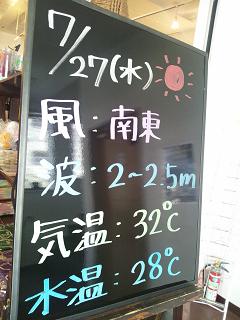 7/27(水)
風:南東
波:2~2.5m
気温:32℃
水温:28℃